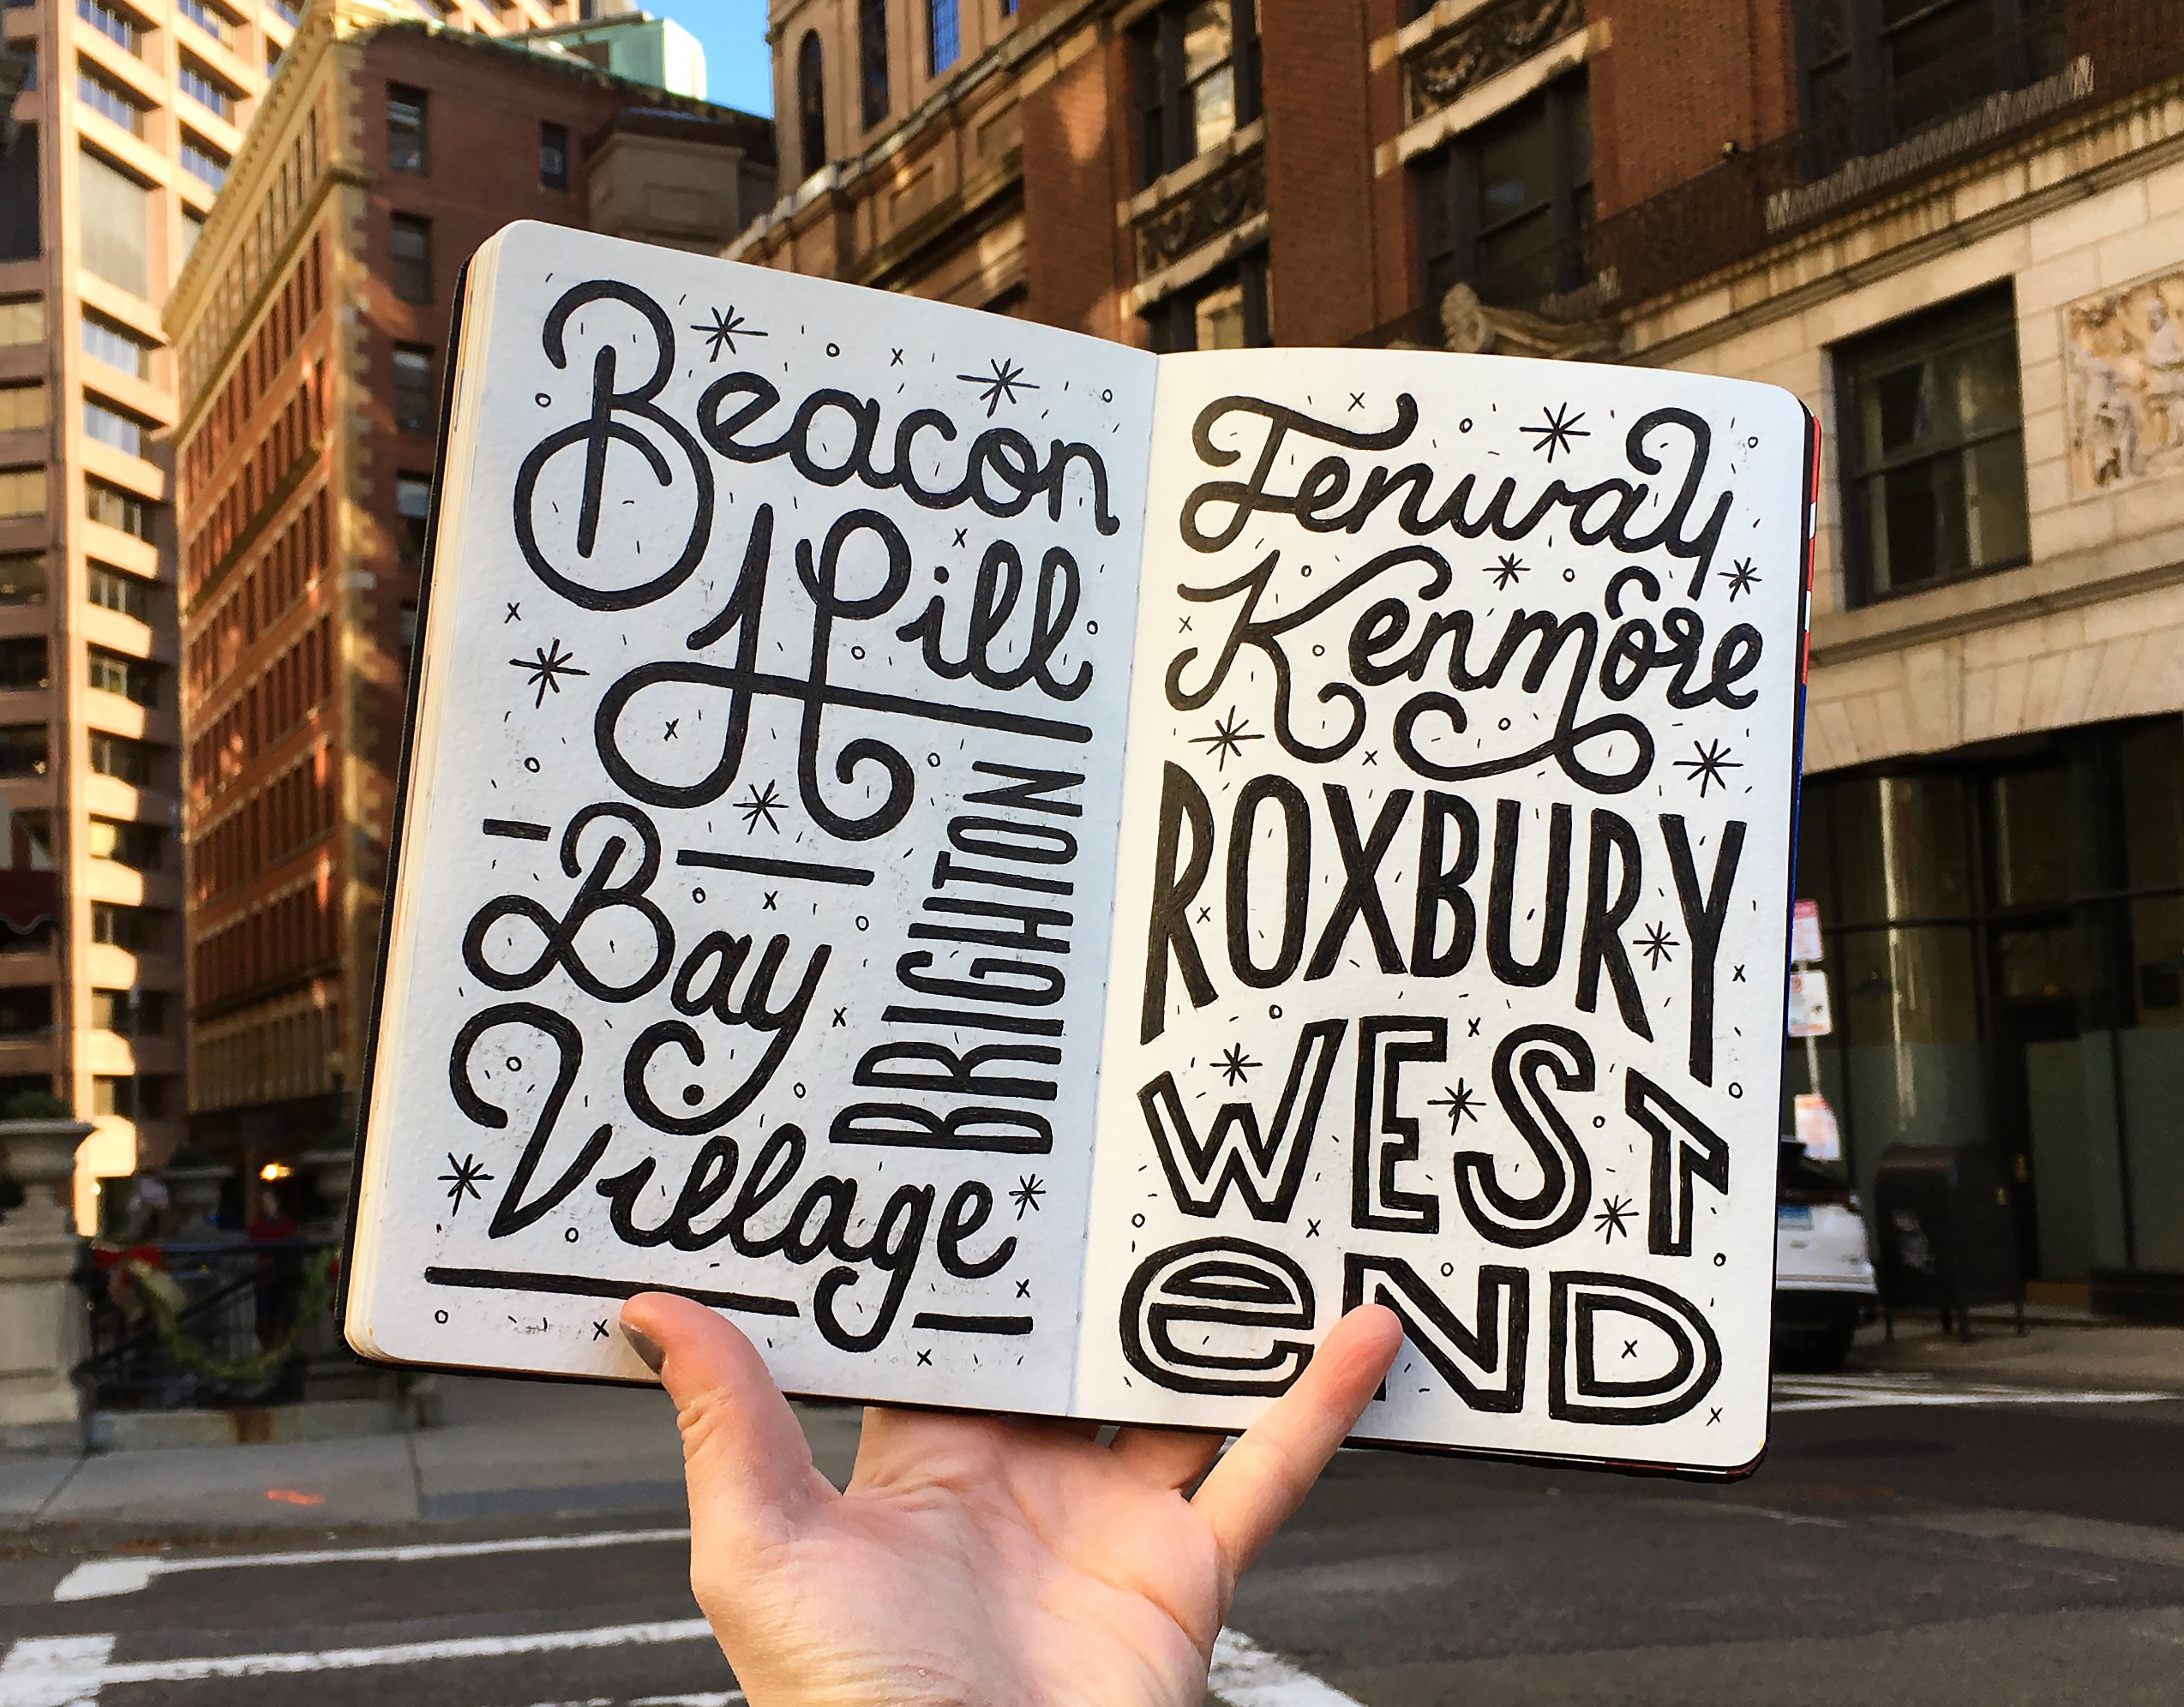 Beacon
Hill
Bay
Village
BRIGHTON
Fenway
Kenmore
ROXBURY
WEST
eND